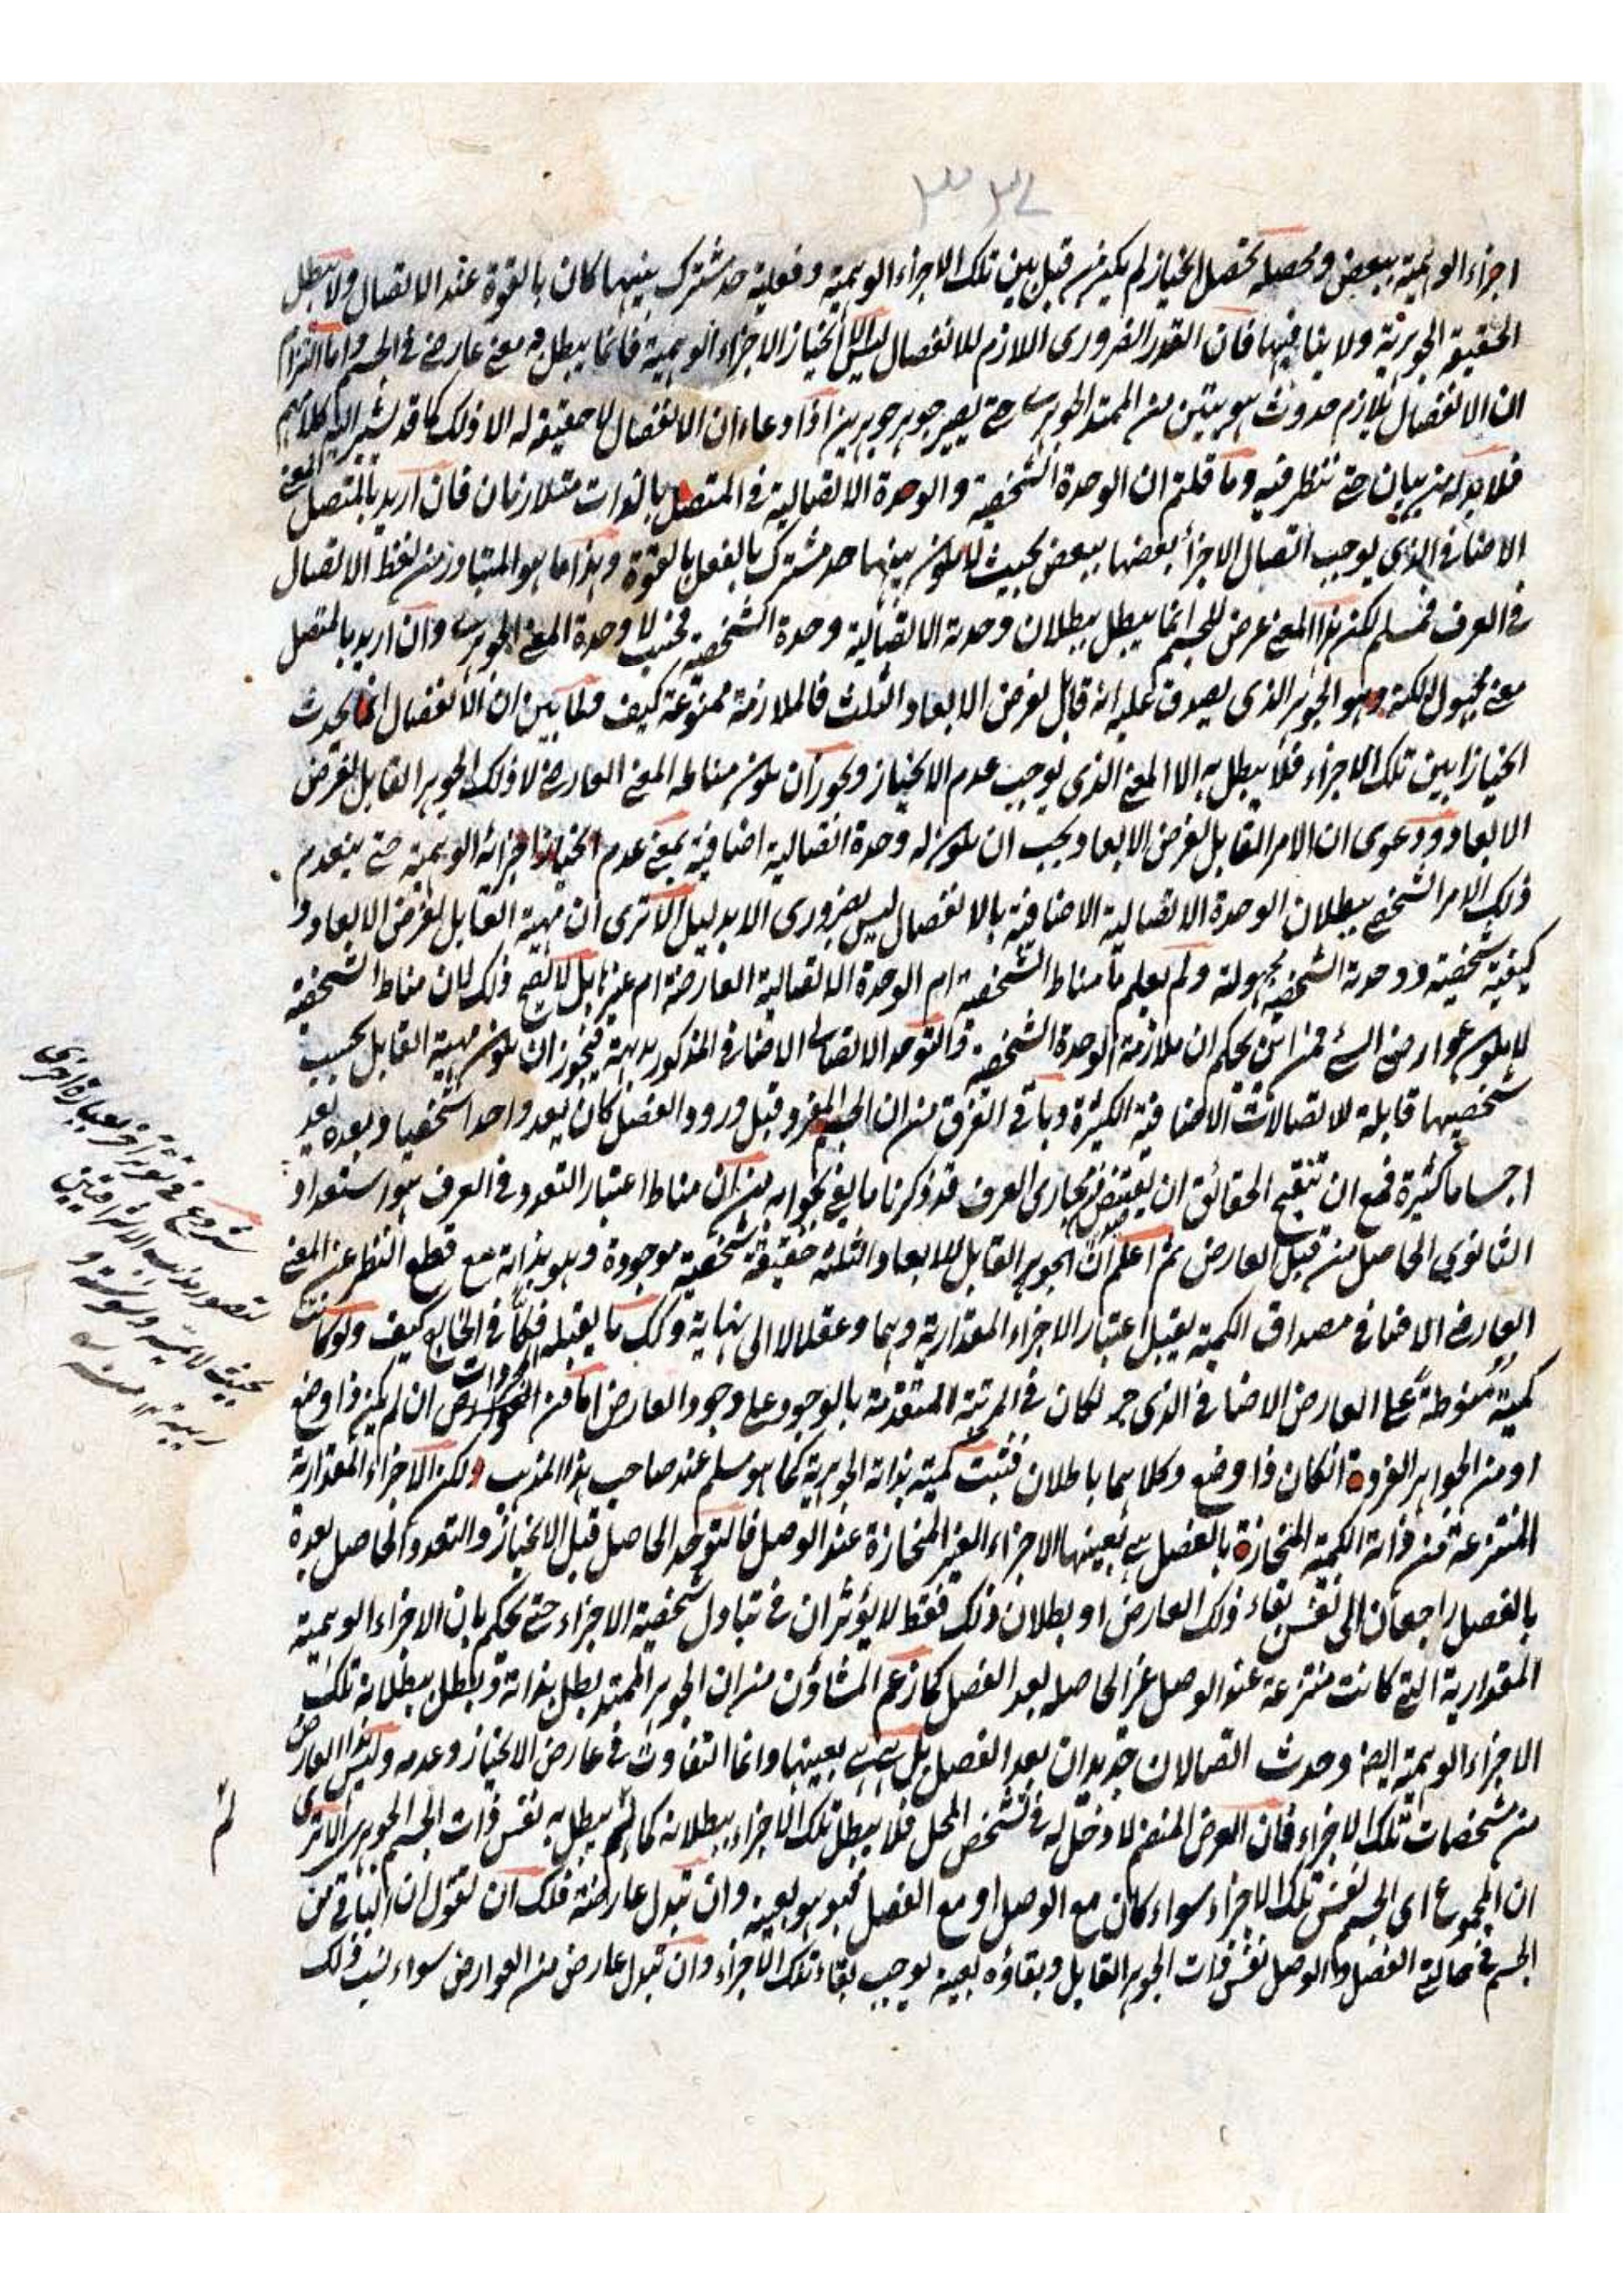 ٣٣٤
اجزاءه الوهمية ببعض ومحصله تحصل انحياز لم يكن من قبل بين تلك الاجزاء الوهمية وفعلية حد مشترك بينهما كان بالقوة عند الاتصال ولا يبطل
الحقيقة الجوهرية ولا ينافيها فان القدر الضروری اللازم للانفصال ليس الا انحياز الاجزاء الوهمية فانما يبطل به معنى عارض فی الجسم واما التزام
ان الانفصال يلازم حدوث هويتين من الممتد الجوهری حتى يصير جوهر جوهرين او ادعاء ان الانفصال لا حقيقة له الا ذلك كما قد يشير اليه كلامهم
فلا بد له من بيان حتى ننظر فيه وما قلتم ان الوحدة الشخصية والوحدة الاتصالية فی المتصل بالذات متلازمان فان اريد بالمتصل المعنى
الاضافی الذی يوجب اتصال الاجزاء بعضها ببعض بحيث لا يكون بينهما حد مشترك بالفعل بل بالقوة وهذا ما هو المتبادر من لفظ الاتصال
فی العرف فمسلم لكن هذا المعنى عرض للجسم انما يبطل ببطلان وحدته الاتصالية وحدة الشخصية فحسب لا وحدة المعنى الجوهری وان اريد بالمتصل
معنى مجهول الكنه وهو الجوهر الذی يصدق عليه انه قابل لفرض الابعاد الثلث فالملازمة ممنوعة كيف ولما تبين ان الانفصال انما يحدث
انحيازا بين تلك الاجزاء فلا يبطل به الا المعنى الذی يوجب عدم الانحياز ويجوز ان يكون مناطه المعنى العارض لا ذلك الجوهر القابل لفرض
الابعاد ودعوى ان الامر القابل لفرض الابعاد يجب ان يكون له وحدة اتصالية اضافية بمعنى عدم انحياز اجزائه الوهمية حتى ينعدم
ذلك الامر الشخصی ببطلان الوحدة الاتصالية الاضافية بالانفصال ليس بضروری الا بدليل الا ترى ان مهية القابل لفرض الابعاد و
كيفية شخصيته ووحدته الشخصية مجهولة ولم يعلم ما مناط الشخصية ام الوحدة الاتصالية العارضة ام غيرها بل لا يصح ذلك لان مناط الشخصية
لا يكون عوارض الشئ فمن اين يحكم ان ملازمة الوحدة الشخصية والتوحد الاتصالی الاضافی المذكور بديهة فيجوز ان يكون مهية القابل بحسب
شخصيتها قابلة للاتصالات الاضافية الكثيرة وباقی التفرق من ان الجسم المفرد قبل ورود الفصل كان يعد واحدا شخصيا وبعده يعد
اجساما كثيرة فمع ان تنقيح الحقائق ان يقتنص من مجاری العرف قد ذكرنا ما يفی بجوابه من ان مناط اعتبار التعدد فی العرف هو استعداد
الثانوی الحاصل من قبل العارض ثم اعلم ان الجوهر القابل للابعاد الثلثة حقيقة شخصية موجودة وهو بذاته مع قطع النظر عن المعنى
العارض الاضافی مصداق الكمية يقبل اعتبار الاجزاء المقدارية وهما وعقلا لا الى نهاية وكذلك ما يقبله فكا فی الخارج كيف ولو كانت
كميته منوطة على العارض الاضافی الذی لكان فی المرتبة المتقدمة بالوجود على وجود العارض اما من المجردات ان لم يكن ذا وضع
او من الجواهر الفردة انكان ذا وضع وكلاهما باطلان فثبت كميته بذاته الجوهرية كما هو مسلم عند صاحب هذا المذهب ولكن الاجزاء المقدارية
المنتزعة من ذاته الكمية المنحازة بالفصل هی بعينها الاجزاء الغير المنحازة عند الوصل فالتوحد الحاصل قبل الانحياز والتعدد الحاصل بعده
بالفصل راجعان الى نفس بقاء ذلك العارض او بطلان ذلك فقط لا يؤثران فی تبادل شخصية الاجزاء حتى يحكم بان الاجزاء الوهمية
المقدارية التی كانت منتزعة عند الوصل غير الحاصلة بعد الفصل كما زعم المشاؤن من ان الجوهر الممتد يبطل بذاته ويبطل ببطلانه تلك
الاجزاء الوهمية ايضا وحدث اتصالان جديدان بعد الفصل بل هی هی بعينها وانما التفاوت فی عارض الانحياز وعدمه وليس هذا العارض
من مشخصات تلك الاجزاء فان العرض المنضم لا دخل له فی تشخص المحل فلا يبطل تلك الاجزاء ببطلانه كما لم يبطل به نفس ذات الجسم الجوهری الا ترى
ان المجموع ای الجسم نفس تلك الاجزاء سواء كان مع الوصل او مع الفصل فهو هو بعينه وان تبدل عارضة فلك ان تقول ان الباقی من
الجسم فی حالتی الفصل والوصل نفس ذات الجوهر القابل وبقاؤه بعينه يوجب بقاء تلك الاجزاء وان تبدل عارض من العوارض سواء نسب ذلك
شروع فی تقرير آخر بعبارة اخرى
لتصوير مذهب الاشراقيين
بحيث لا
ريبة ١٢ منه
لم